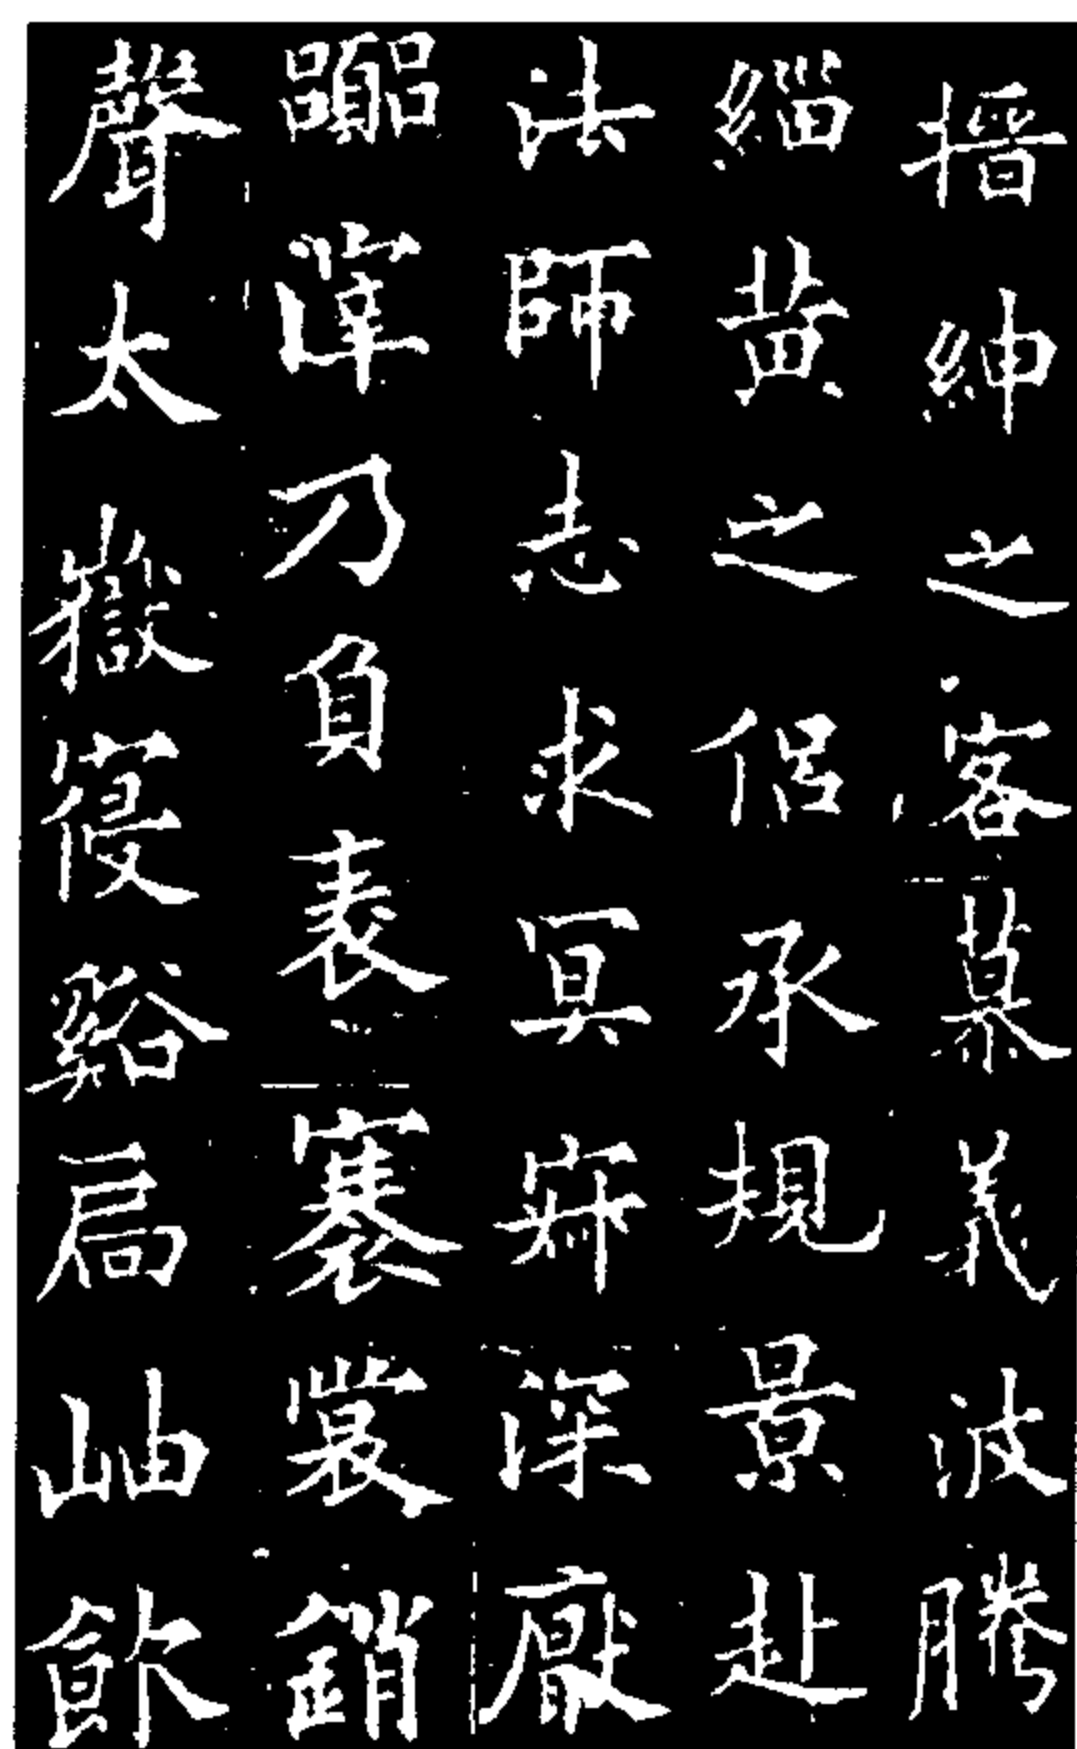 搢紳之客慕義波騰
緇黃之侶承規景赴
法師志求冥寂深厭
囂滓乃負袠褰裳銷
聲太嶽寢谿扃岫飲